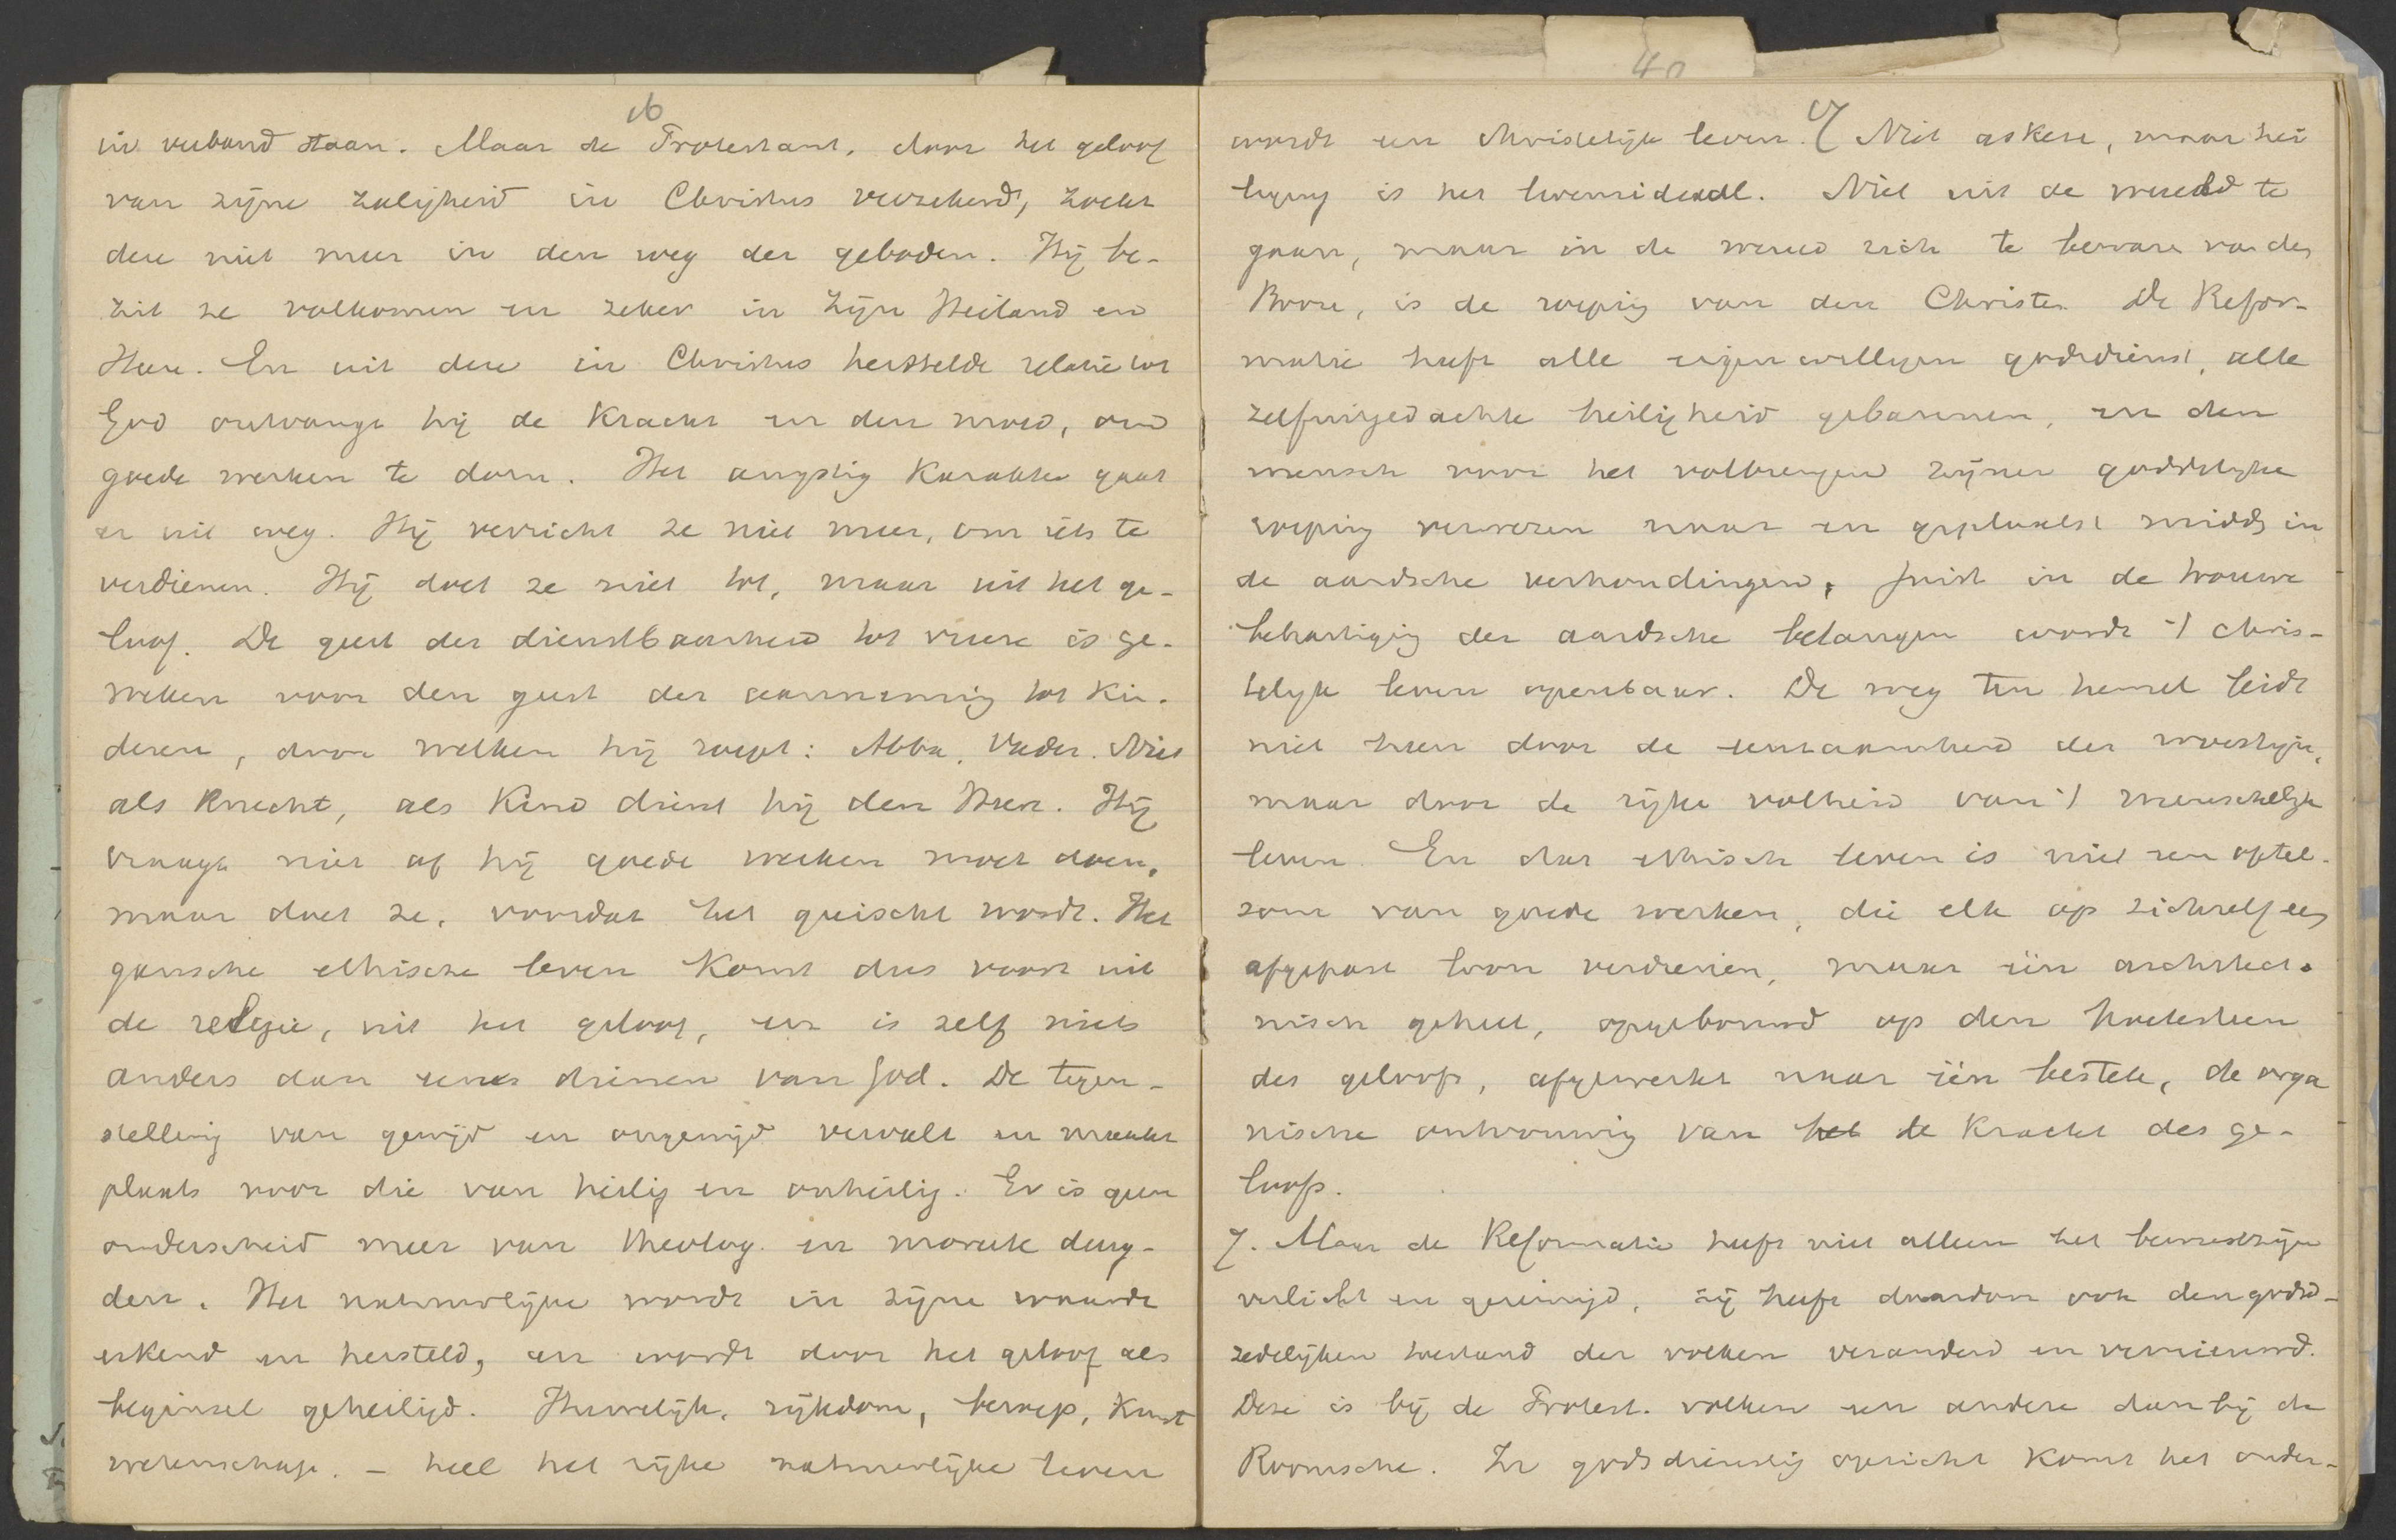 16
in verband staan. Maar de Protestant, door het geloof
van zijne zaligheid in Christus verzekerd, zoekt
deze niet meer in den weg der geboden. Hij be-
zit ze volkomen en zeker in zijn Heiland en
Heere. En uit deze in Christus herstelde relatie tot
God ontvangt hij de kracht en den moed, om
goede werken te doen. Het angstig karakter gaat
er uit weg. Hij verricht ze niet meer, om iets te
verdienen. Hij doet ze niet tot, maar uit het ge-
loof. De geest der dienstbaarheid tot vreeze is ge-
weken voor den geest der aanneming tot kin-
deren, door welken hij roept: Abba, Vader. Niet
als knecht, als kind dient hij den Heer. Hij
vraagt niet of hij goede werken moet doen,
maar doet ze, voordat het geëischt wordt. Het
gansche ethische leven komt dus voort uit
de religie, uit het geloof, en is zelf niets
anders dan een dienen van God. De tegen-
stelling van gewijd en ongewijd vervalt en maakt
plaats voor die van heilig en onheilig. Er is geen
onderscheid meer van theolog. en moreele deug-
den. Het natuurlijke wordt in zijne waarde
erkend en hersteld, en wordt door het geloof als
beginsel geheiligd. Huwelijk, rijkdom, beroep, kunst
wetenschap. - heel het rijke natuurlijke leven
40
17
wordt een christelijk leven. Niet askese, maar hei
liging is het levensideaal. Niet uit de wereld te
gaan, maar in de wereld zich te bewaren van den
Booze, is de roeping van den Christen. De Refor-
matie heeft alle eigenwilligen godsdienst, alle
zelfuitgedachte heiligheid gebannen, en den
mensch voor het volbrengen zijner goddelijke
roeping verwezen naar en geplaatst midden in
de aardsche verhoudingen. Juist in de trouwe
behartiging der aardsche belangen wordt 't chris-
telijk leven openbaar. De weg ten hemel leidt
niet heen door de eenzaamheid der woestijn,
maar door de rijke volheid van 't menschelijk
leven. En dat ethisch leven is niet een optel-
som van goede werken, die elk op zichzelf een
afgepast loon verdienen, maar één architecto-
nisch geheel, opgebouwd op den hoeksteen
des geloofs, afgewerkt naar één bestek, de orga
nische ontvouwing van het de kracht des ge-
loofs.
7. Maar de Reformatie heeft niet alleen het bewustzijn
verlicht en gereinigd, zij heeft daardoor ook den godsd-
zedelijken toestand der volken veranderd en vernieuwd.
Deze is bij de Protest. volken een andere dan bij de
Roomsche. In godsdienstig opzicht komt het onder-